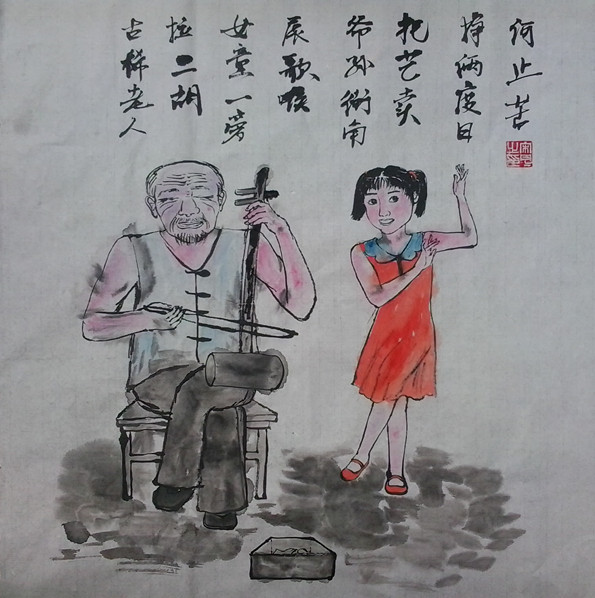 古稀老人
拉二胡
女童一旁
展歌喉
爷孙街南
把艺卖
挣俩度日
何止苦